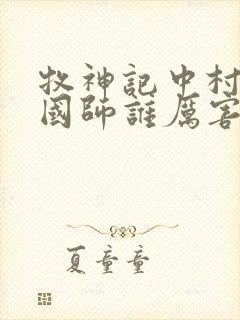 牧神記中村
國師誰厲害
夏童童